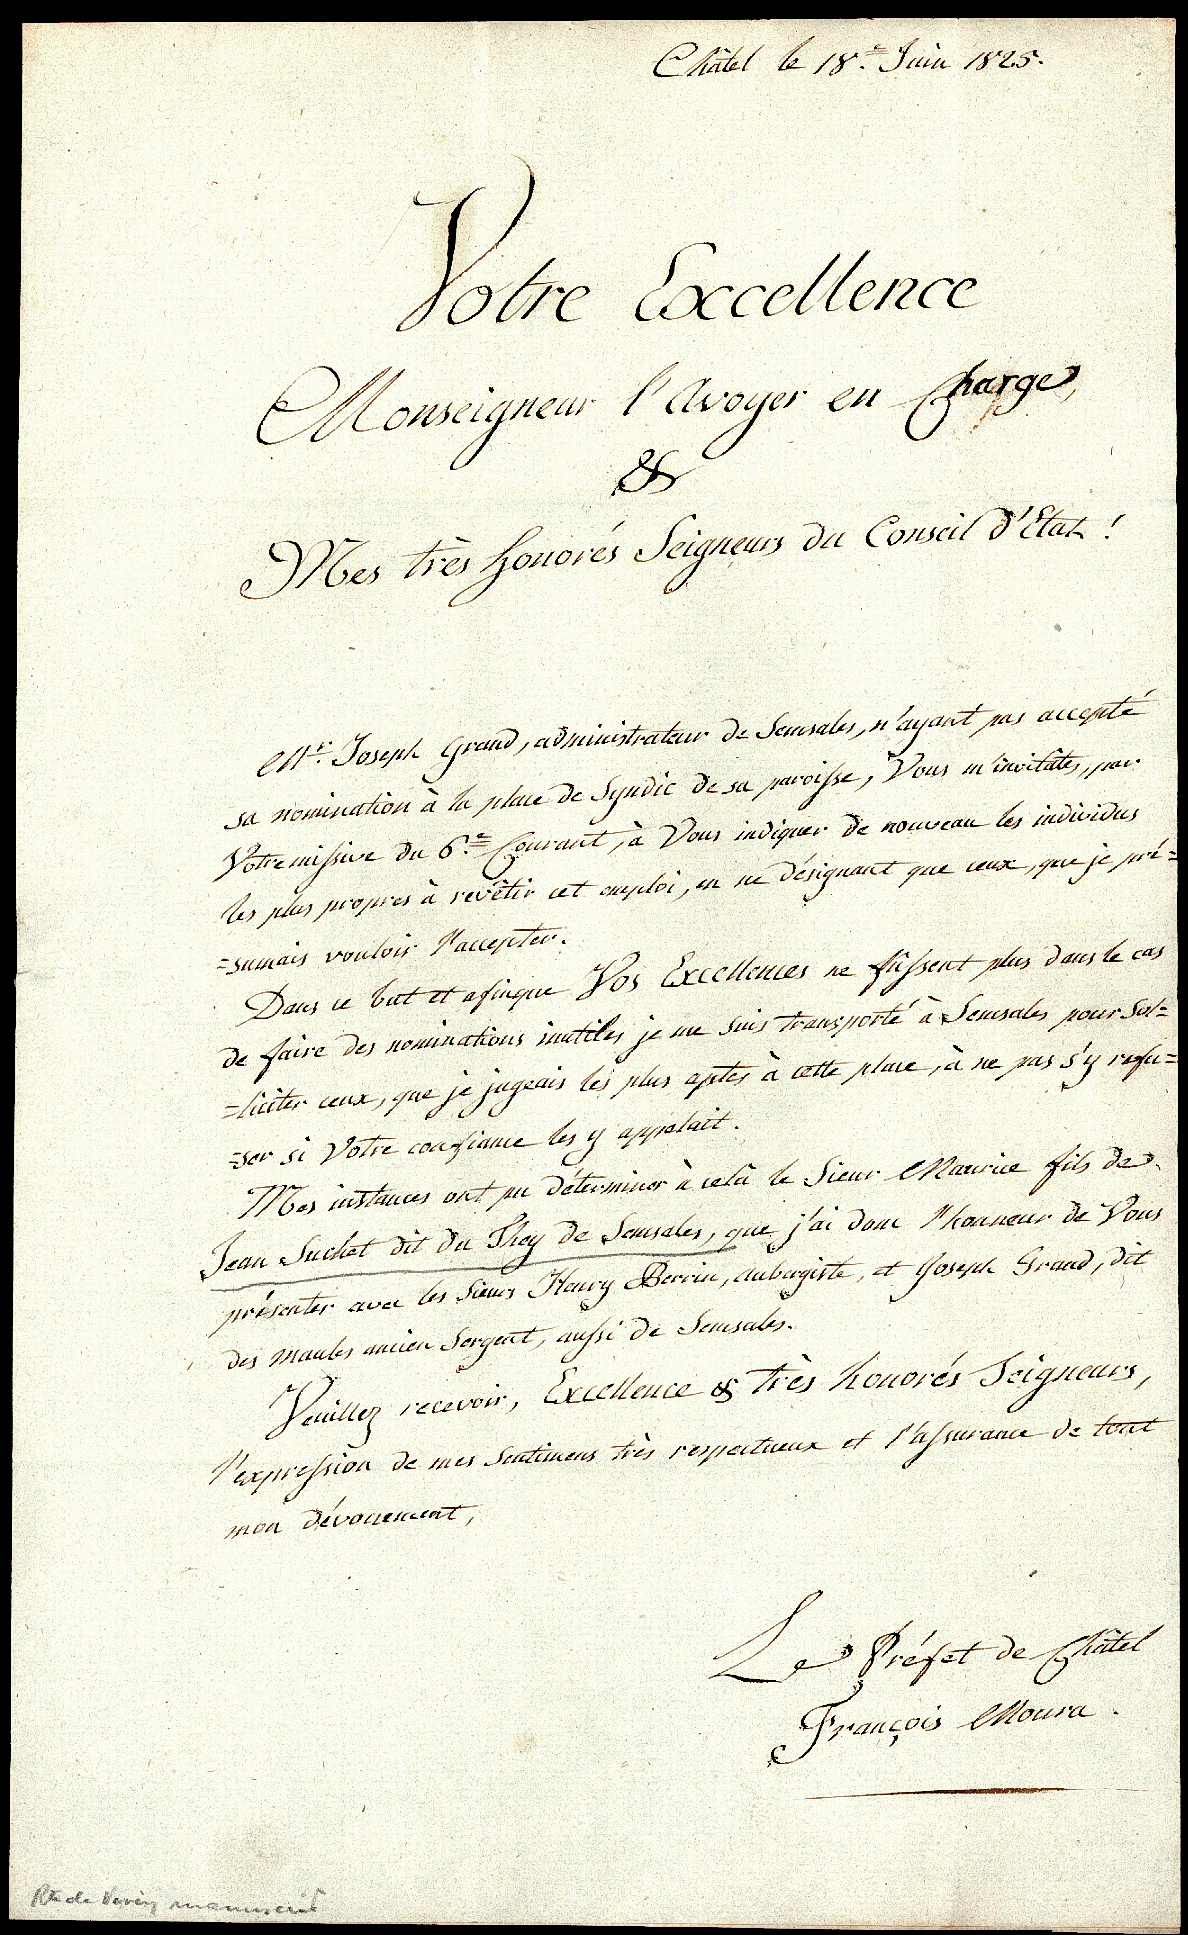 Châtel le 18.e Juin 1825.
Votre Excellence
Monseigneur l'Avoyer en Charge,
&
Mes très honorés Seigneurs du Conseil d'Etat !
Mr. Joseph Grand, administrateur de Semsales, n'ayant pas accepté
sa nomination à la place de Syndic de sa paroisse, Vous m'invitâtes, par
Votre missive du 6.e Courant, à Vous indiquer de nouveau les individus
les plus propres à revêtir cet emploi, en ne désignant que ceux, que je pré=
=sumais vouloir l'accepter.
Dans ce but et afinque Vos Excellences ne fussent plus dans le cas
de faire des nominations inutiles je me suis transporté à Semsales pour sol=
=liciter ceux, que je jugeais les plus aptes à cette place, à ne pas s'y refu=
=ser si Votre confiance les y appelait.
Mes instances ont pu déterminer à celà le Sieur Maurice fils de
Jean Suchet dit du They de Semsales, que j'ai donc l'honneur de Vous
présenter avec les Sieurs Henry Perrin, aubergiste, et Joseph Grand, dit
des maules ancien Sergent, aussi de Semsales.
Veuillez recevoir, Excellence & très honorés Seigneurs,
l'expression de mes sentimens très respectueux et l'assurance de tout
mon dévouement,
Le Préfet de Châtel
François Moura.
manuscrit